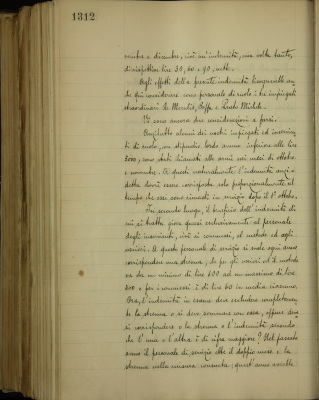 1312
vembre e dicembre, cioè un'indennità, una volta tanto,
di rispettive lire 30, 60 e 90, nette.
Agli effetti della presente indennità bisognerebbe an-
che qui considerare come personale di ruolo i tre impiegati
straordinari De Merolis, Poffe e Prato Michele.
Vi sono ancora due considerazioni a farsi.
Anzitutto alcuni dei nostri impiegati ed inservien-
ti di ruolo, con stipendio lordo annuo inferiore alle lire
2000, sono stati chiamati alle armi nei mesi di ottobre
e novembre. A questi naturalmente l'indennità anzi-
detta dovrà essere corrisposta solo proporzionalmente al
tempo che essi sono rimasti in servizio dopo il 1° ottobre.
In secondo luogo, il beneficio dell'indennità di
cui si tratta giova quasi esclusivamente al personale
degli inservienti, cioè ai commessi, al custode ed agli
uscieri. A questo personale di servizio si suole ogni anno
corrispondere una strenna, che per gli uscieri ed il custode
va da un minimo di lire 100 ad un massimo di lire
200 e per i commessi è di lire 60 in media ciascuno.
Ora, l'indennità in esame deve escludere completamen-
te la strenna o si deve sommare con essa, oppure deve
si corrispondere o la strenna o l'indennità secondo
che l'una o l'altra è di cifra maggiore? Nel passato
anno il personale di servizio ebbe il doppio mese e la
strenna nella misura consueta; quest'anno avrebbe